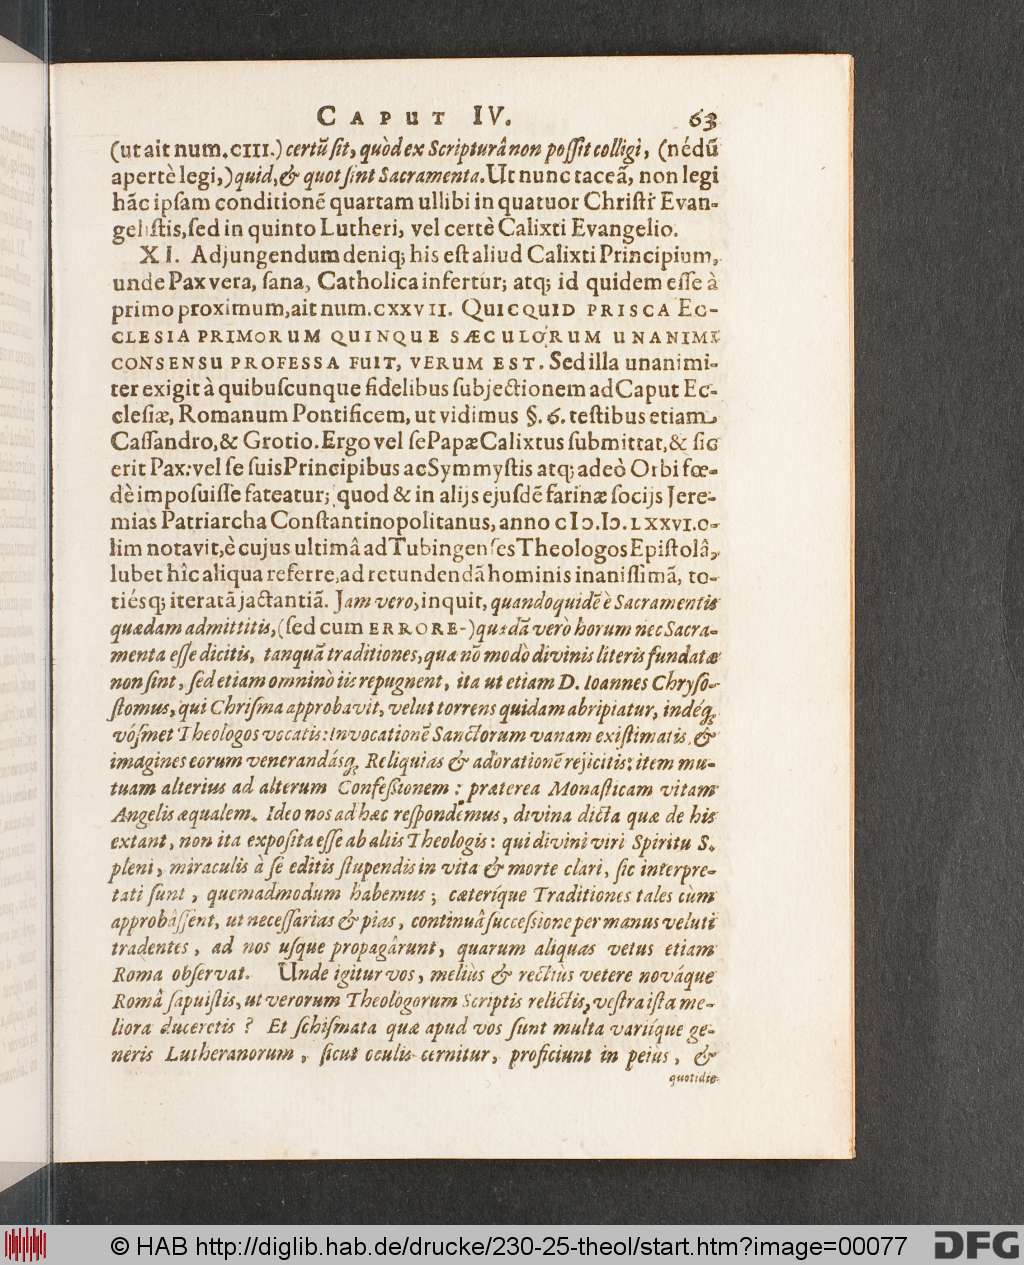 CAPUT IV. 63
(ut ait num. CIII.) certũ sit, quòd ex Scripturâ non possit colligi, (nédũ
apertè legi,) quid, & quot sint Sacramenta. Ut nunc taceã, non legi
hãc ipsam conditionẽ quartam ullibi in quatuor Christi Evan-
gelistis, sed in quinto Lutheri, vel certè Calixti Evangelio.
XI. Adjungendum deniq; his est aliud Calixti Principium,
unde Pax vera, sana, Catholica infertur; atq; id quidem esse à
primo proximum, ait num. CXXVII. QUICQUID PRISCA EC-
CLESIA PRIMORUM QUINQUE SÆCULORUM UNANIMI
CONSENSU PROFESSA FUIT, VERUM EST. Sed illa unanimi-
ter exigit à quibuscunque fidelibus subjectionem ad Caput Ec-
clesiæ, Romanum Pontificem, ut vidimus §. 6. testibus etiam
Cassandro, & Grotio. Ergo vel se Papæ Calixtus submittat, & sic
erit Pax: vel se suis Principibus ac Symmystis atq; adeò Orbi fœ-
dè imposuisse fateatur; quod & in alijs ejusdẽ farinæ socijs Jere-
mias Patriarcha Constantinopolitanus, anno cIↄ.Iↄ.LXXVI. o-
lim notavit, è cujus ultimâ ad Tubingenses Theologos Epistolâ,
lubet hîc aliqua referre, ad retundendã hominis inanissimã, to-
tiésq; iteratã jactantiã. Jam vero, inquit, quandoquidẽ è Sacramentis
quædam admittitis, (sed cum ERRORE-) quædã verò horum nec Sacra-
menta esse dicitis, tanquã traditiones, quæ nõ modò divinis literis fundatæ
non sint, sed etiam omninò iis repugnent, ita ut etiam D. Ioannes Chryso-
stomus, qui Chrisma approbavit, velut torrens quidam abripiatur, indéq;
vósmet Theologos vocatis: Invocationẽ Sanctorum vanam existimatis, &
imagines eorum venerandásq; Reliquias & adorationẽ rejicitis: item mu-
tuam alterius ad alterum Confessionem: præterea Monasticam vitam
Angelis æqualem. Ideo nos ad hæc respondemus, divina dicta quæ de his
extant, non ita exposita esse ab aliis Theologis: qui divini viri Spiritu S.
pleni, miraculis à se editis stupendis in vita & morte clari, sic interpre-
tati sunt, quemadmodum habemus; cæteríque Traditiones tales cùm
approbâssent, ut necessarias & pias, continuâ successione per manus veluti
tradentes, ad nos usque propagârunt, quarum aliquas vetus etiam
Roma observat. Unde igitur vos, meliùs & rectiùs vetere nováque
Româ sapuistis, ut verorum Theologorum Scriptis relictis, vestra ista me-
liora duceretis? Et schismata quæ apud vos sunt multa variíque ge-
neris Lutheranorum, sicut oculis cernitur, proficiunt in peius, &
quotidie
© HAB http://diglib.hab.de/drucke/230-25-theol/start.htm?image=00077 DFG